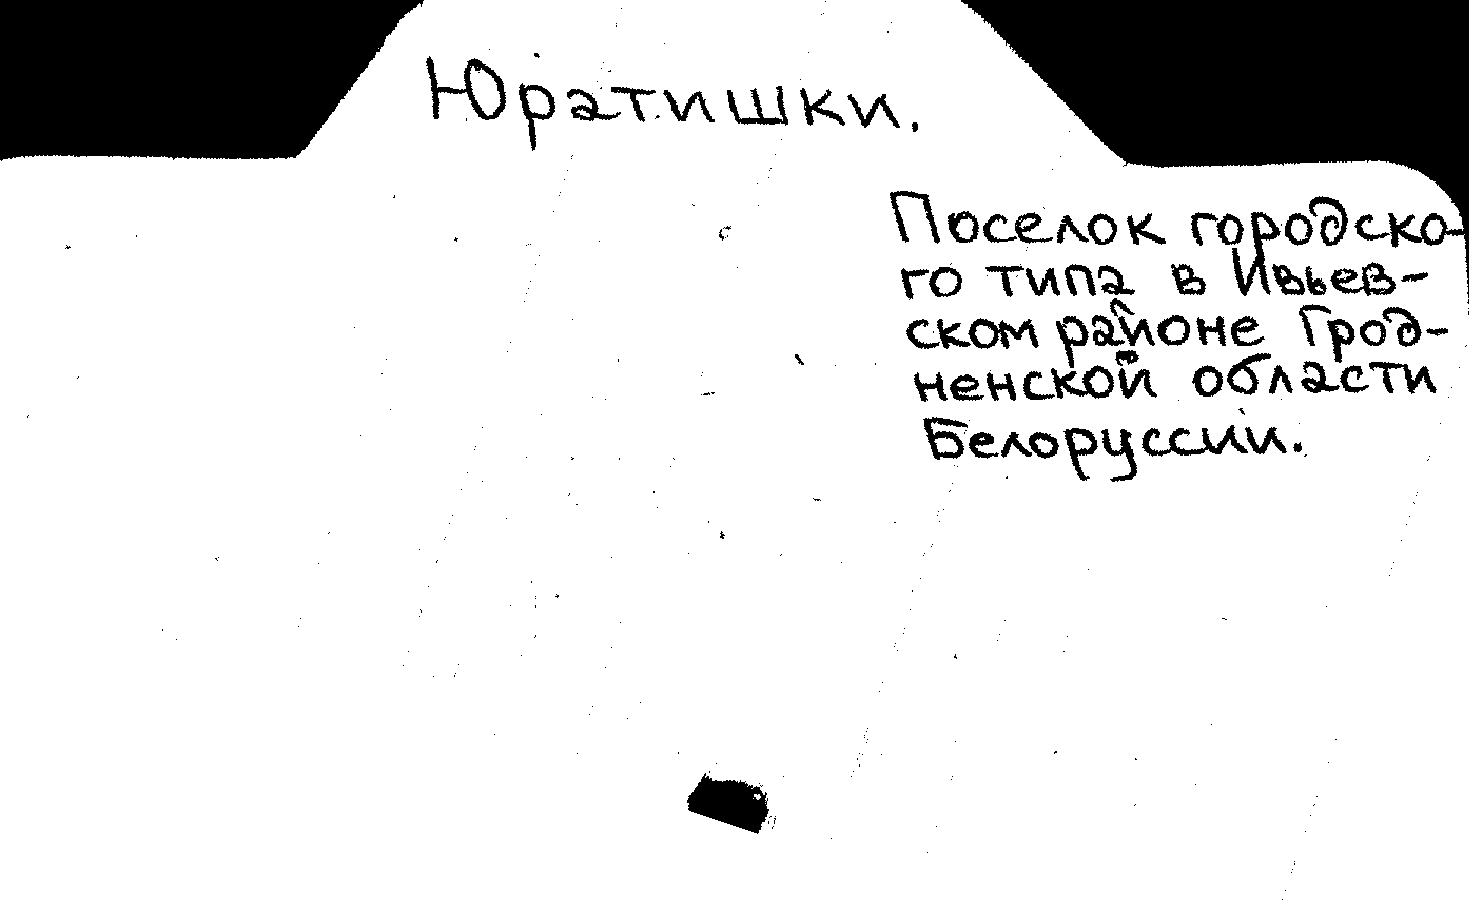 Юратишки.
Поселок городско-
го типа в Ивьев-
ском районе Грод-
ненской области
Белоруссии.